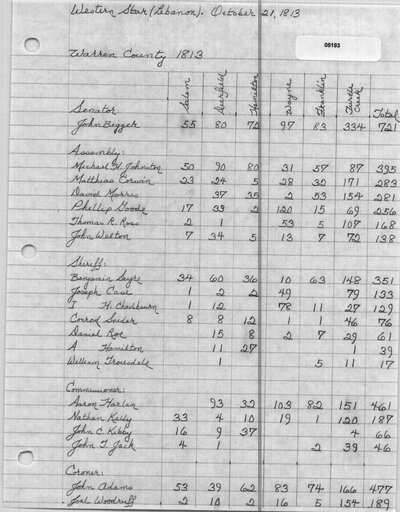 Western Star (Lebanon). October 21, 1813
05193
Warren County 1813
Salem Deerfield Hamilton Wayne Franklin Turtle Creek Total
Senator
John Bigger 55 80 72 97 83 334 721
Assembly:
Michael H. Johnston 50 90 80 31 57 87 395
Matthias Corwin 23 24 5 28 32 171 283
David Morris 37 35 2 53 154 281
Phillip Goode 17 33 2 120 15 69 256
Thomas R. Ross 2 1 53 5 107 168
John Welton 7 34 5 13 7 72 138
Sheriff:
Benjamin Sayre 34 60 36 10 63 148 351
Joseph Case 1 2 2 49 79 133
T H. Chadbourn 1 12 78 11 27 129
Conrod Snider 8 8 12 1 1 46 76
Daniel Roe 15 8 2 7 29 61
A Hamilton 11 27 1 39
William Trousdale 1 5 11 17
Commissioner:
Aaron Harlan 93 32 103 82 151 461
Nathan Kelly 33 4 10 19 1 120 187
John C. Kibby 16 9 37 4 66
John T. Jack 4 1 2 39 46
Coroner:
John Adams 53 39 62 83 74 166 477
Joel Woodruff 2 10 2 16 5 154 189